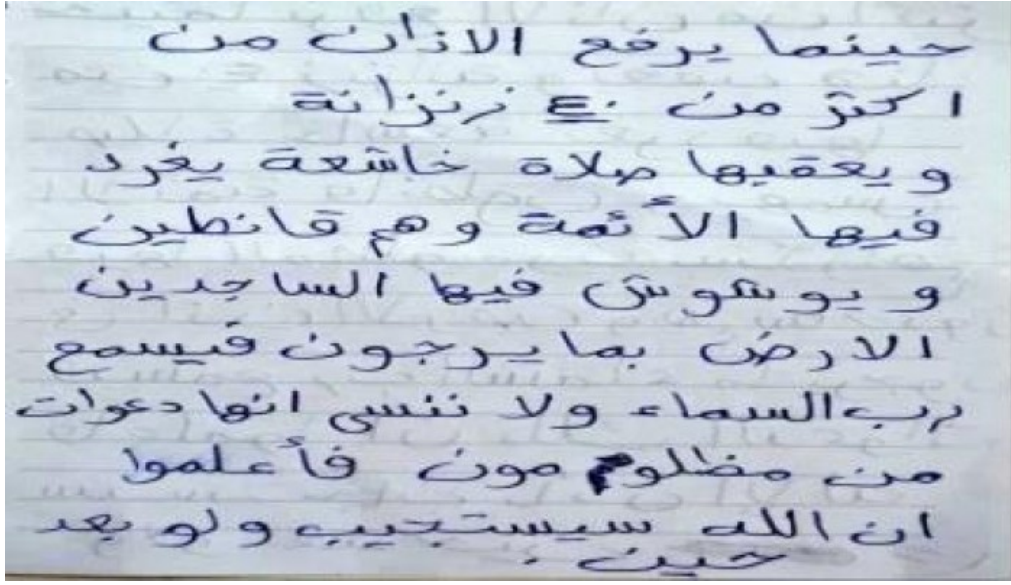 حينما يرفع الاذان من
اكثر من ٤٠ زنزانة
ويعقبها صلاة خاشعة يغرد
فيها الأئمة وهم قانطين
ويوشوش فيها الساجدين
الارض بما يرجون فيسمع
رب السماء ولا ننسى انها دعوات
من مظلوم مون فأعلموا
ان الله سيستجيب ولو بعد
حين .